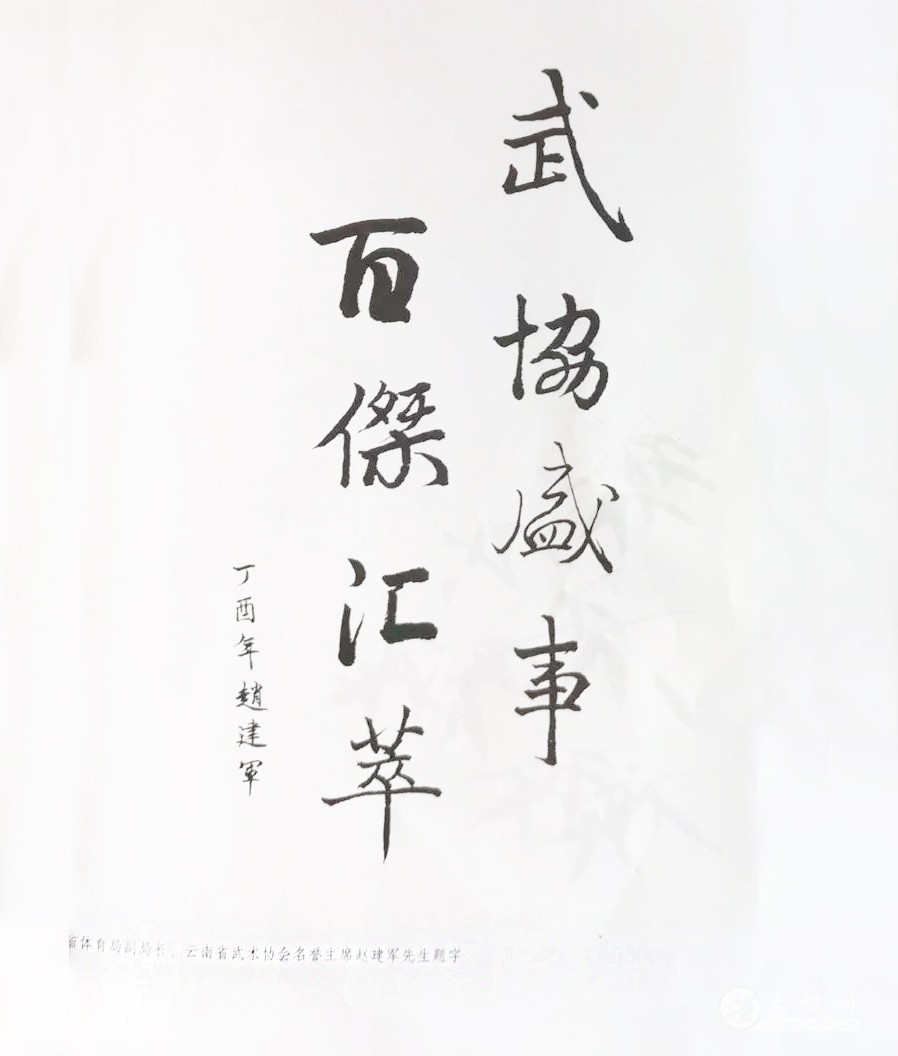 武協盛事
百傑汇萃
丁酉年趙建軍
省体育局副局长、云南省武术协会名誉主席赵建军先生题字
太极网